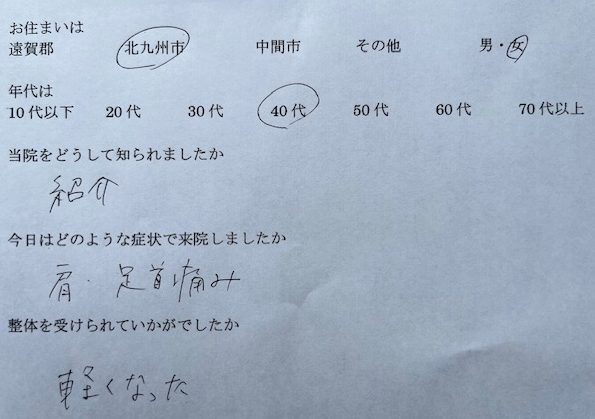 お住まいは
遠賀郡 北九州市 中間市 その他 男・女
年代は
10代以下 20代 30代 40代 50代 60代 70代以上
当院をどうして知られましたか
紹介
今日はどのような症状で来院しましたか
肩・足首痛み
整体を受けられていかがでしたか
軽くなった